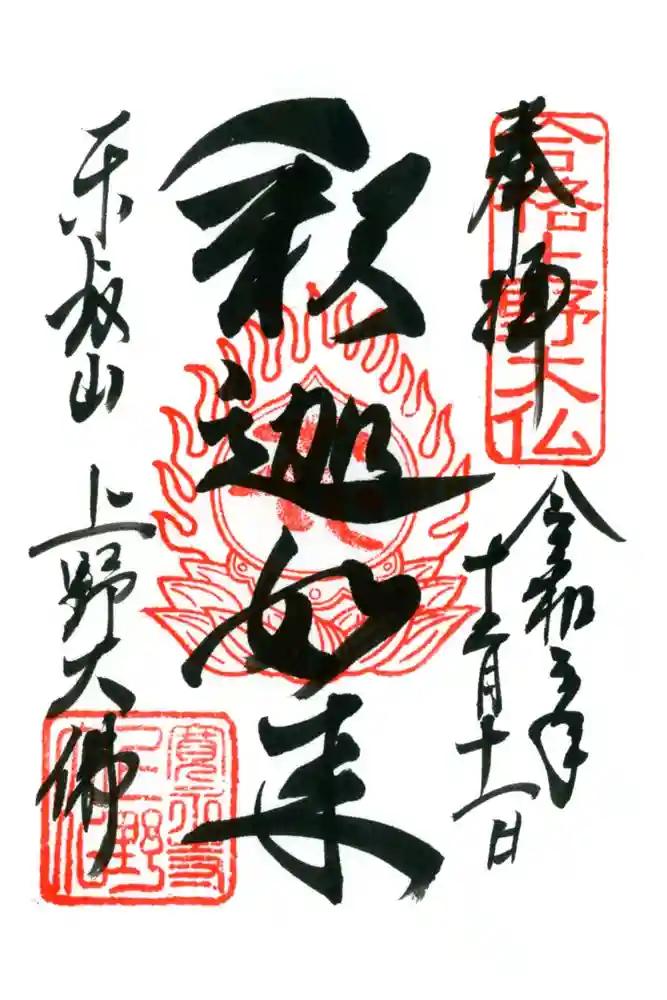 奉拝
合格上野大仏
令和年
十二月十一日
釈迦如来
東叡山 上野大佛
寛永寺
上野